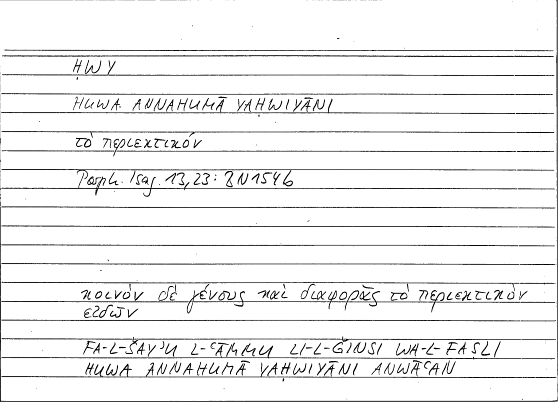 ḤWY
HUWA ANNAHUMĀ YAḤWIYĀNI
τὸ περιεκτικόν
Porph. Isag. 13,23: BN154b
κοινὸν δὲ γένους καὶ διαφορᾶς τὸ περιεκτικὸν
εἰδῶν
FA-L-ŠAYʾU L-ʿĀMMU LI-L-ǦINSI WA-L-FAṢLI
HUWA ANNAHUMĀ YAḤWIYĀNI ANWĀʿAN